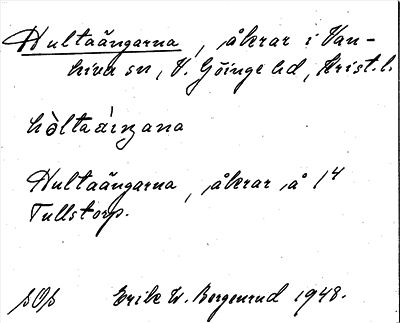 Hultaängarna, åkrar i Van-
kiva sn, V. Göinge hd, Krist. l.
Hultaängarna, åkrar å 1⁴
Tullstorp.
Erik W. Bergenrud 1948.